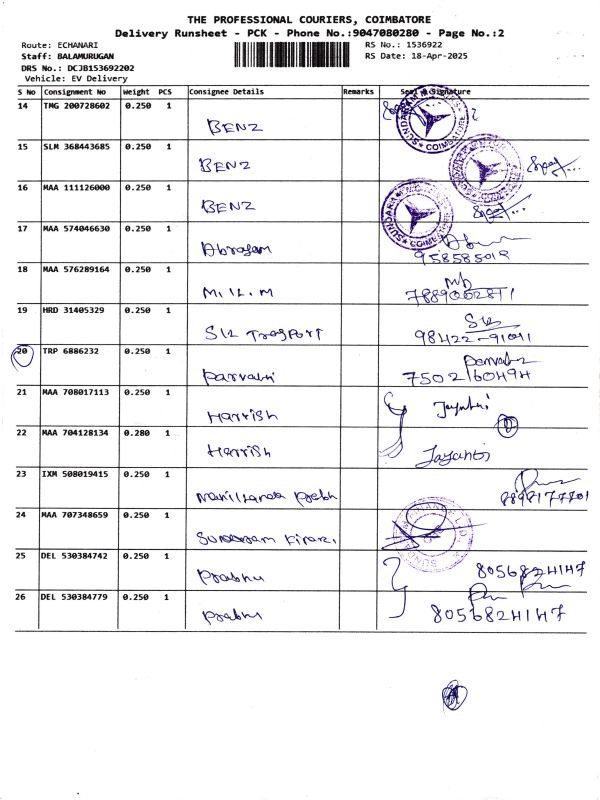 THE PROFESSIONAL COURIERS, COIMBATORE
Delivery Runsheet - PCK - Phone No.:9047080280 - Page No.:2
Route: ECHANARI
RS No.: 1536922
Staff: BALAMURUGAN
RS Date: 18-Apr-2025
DRS No.: DCJB153692202
Vehicle: EV Delivery
S No Consignment No Weight PCS Consignee Details Remarks Seal & Signature
14 TMG 200728602 0.250 1
BENZ
15 SLM 368443685 0.250 1
BENZ
16 MAA 111126000 0.250 1
BENZ
17 MAA 574046630 0.250 1
Abragam
958585019
18 MAA 576289164 0.250 1
M.I.L.M
7889002811
19 HRD 31405329 0.250 1
SLR
98422-91011
20 TRP 6886232 0.250 1
Parvathi
7502160494
21 MAA 708017113 0.250 1
Harrish Jayanthi
22 MAA 704128134 0.280 1
Harrish Jayanthi
23 IXM 508019415 0.250 1
Prabh
24 MAA 707348659 0.250 1
Sundaram
25 DEL 530384742 0.250 1
Prabhu
8056824147
26 DEL 530384779 0.250 1
Prabhu
8056824147